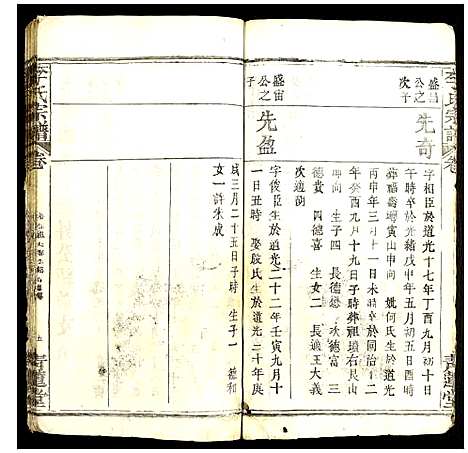 李氏宗譜
卷
盛
公之
次子
先奇
字相臣於道光十七年丁酉九月初十日
午時卒於光緒戊申年五月初五日酉時
葬福壽壪寅山申向 妣何氏生於道光
丙申年三月十一日未時歿於同治十二
年癸酉九月十九日子時葬祖墳右艮
坤向 生子四 長德懋 次德富 三
德貴 四德喜 生女二 長適王大義
次適胡
盛宙
公之
子
先盈
字俊臣生於道光二十二年壬寅九月十
一日丑時 娶殷氏生於道光二十年庚
戌三月二十五日子時 生子一 德和
女一許朱成
李氏宗譜
卷
青蓮堂